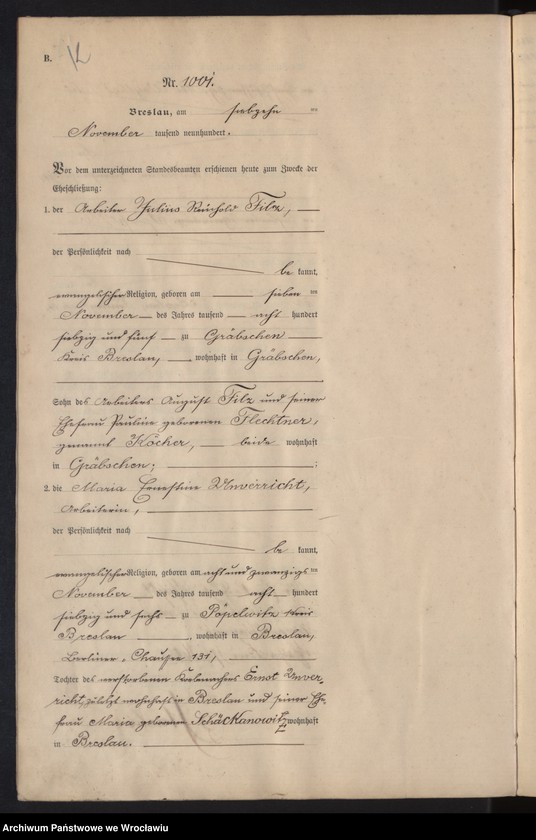 B.
Nr. 1001.
Breslau, am siebzehn ten
November tausend neunhundert.
Vor dem unterzeichneten Standesbeamten erschienen heute zum Zwecke der
Eheschließung:
1. der Arbeiter Julius Reinhold Filz,
der Persönlichkeit nach
be kannt,
evangelischer Religion, geboren am sieben ten
November des Jahres tausend acht hundert
siebzig und fünf zu Gräbschen
Kreis Breslau, wohnhaft in Gräbschen,
Sohn des Arbeiters August Filz und seiner
Ehefrau Pauline geborenen Flechtner,
genannt Köcher, beide wohnhaft
in Gräbschen;
2. die Maria Ernestine Unverricht,
Arbeiterin,
der Persönlichkeit nach
be kannt,
evangelischer Religion, geboren am acht und zwanzigs ten
November des Jahres tausend acht hundert
siebzig und sechs zu Pöpelwitz Kreis
Breslau, wohnhaft in Breslau,
Berliner Chaussee 131,
Tochter des verstorbenen Ernst Unver-
richt, zuletzt wohnhaft in Breslau und seiner Ehe-
frau Maria geborenen Schäckanowitz wohnhaft
in Breslau.
Archiwum Państwowe we Wrocławiu